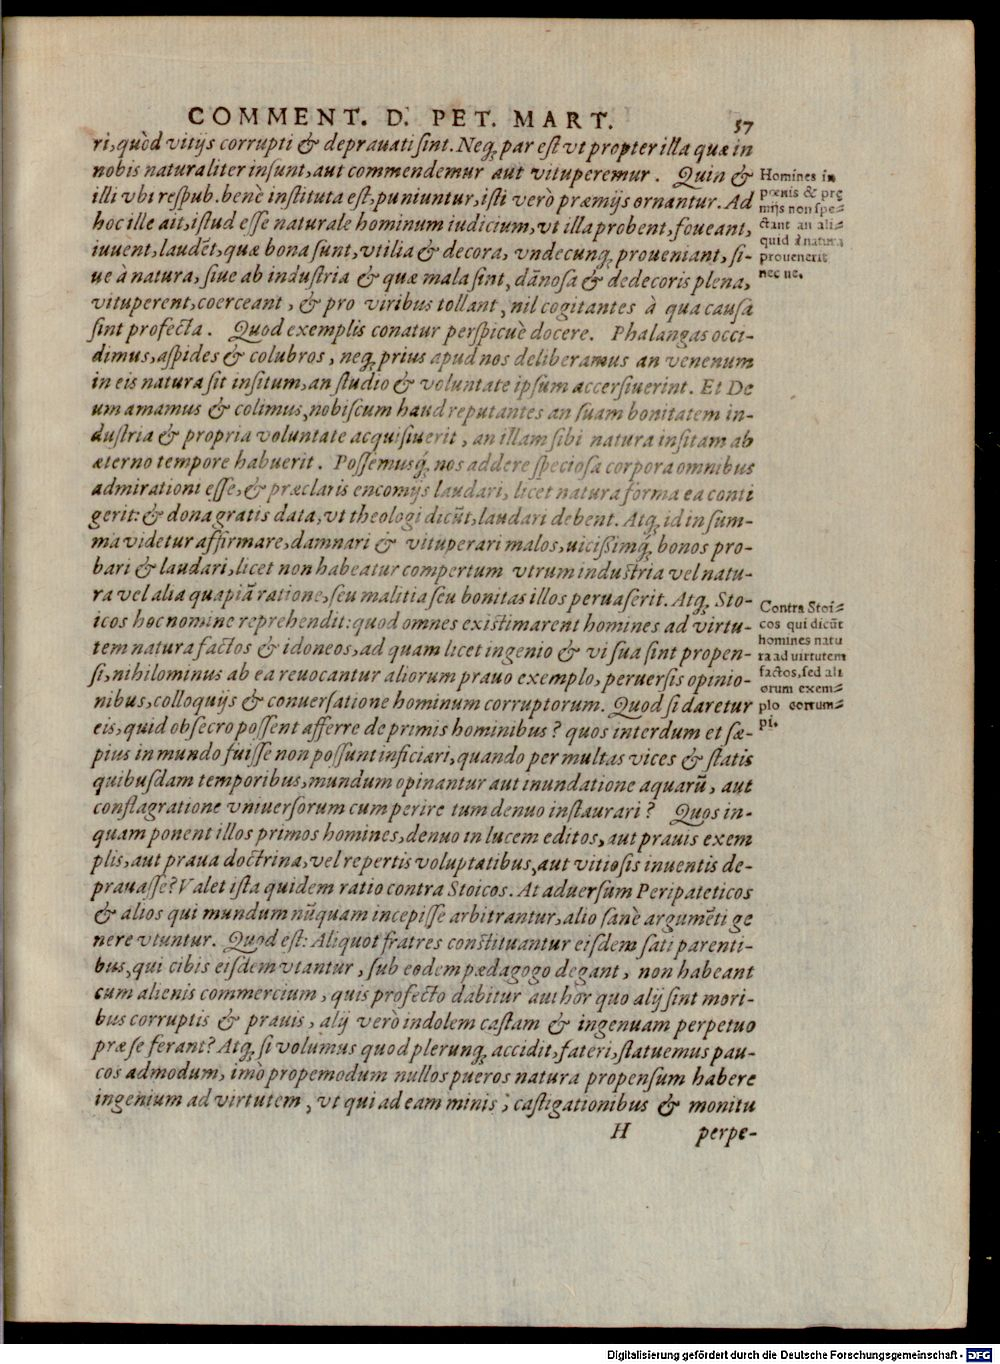 COMMENT. D. PET. MART. 57
ri, quòd vitijs corrupti & deprauati sint. Neq; par est vt propter illa quæ in
nobis naturaliter insunt, aut commendemur aut vituperemur. Quin &
illi vbi respub. benè instituta est, puniuntur, isti verò præmijs ornantur. Ad
hoc ille ait, istud esse naturale hominum iudicium, vt illa probent, foueant,
iuuent, laudēt, quæ bona sunt, vtilia & decora, vndecunq; proueniant, si-
ue à natura, siue ab industria & quæ mala sint, dānosa & dedecoris plena,
vituperent, coerceant, & pro viribus tollant, nil cogitantes à qua causa
sint profecta. Quod exemplis conatur perspicuè docere. Phalangas occi-
dimus, aspides & colubros, neq; prius apud nos deliberamus an venenum
in eis natura sit insitum, an studio & voluntate ipsum accersiuerint. Et De
um amamus & colimus, nobiscum haud reputantes an suam bonitatem in-
dustria & propria voluntate acquisiuerit, an illam sibi natura insitam ab
æterno tempore habuerit. Possemusq́; nos addere speciosa corpora omnibus
admirationi esse, & præclaris encomijs laudari, licet natura forma ea conti
gerit: & dona gratis data, vt theologi dicūt, laudari debent. Atq; id in sum-
ma videtur affirmare, damnari & vituperari malos, uicissimq́; bonos pro-
bari & laudari, licet non habeatur compertum vtrum industria vel natu-
ra vel alia quapiā ratione, seu malitia seu bonitas illos peruaserit. Atq; Sto-
icos hoc nomine reprehendit: quod omnes existimarent homines ad virtu-
tem natura factos & idoneos, ad quam licet ingenio & vi sua sint propen-
si, nihilominus ab ea reuocantur aliorum prauo exemplo, peruersis opinio-
nibus, colloquijs & conuersatione hominum corruptorum. Quod si daretur
eis, quid obsecro possent afferre de primis hominibus? quos interdum et sæ-
pius in mundo fuisse non possunt inficiari, quando per multas vices & statis
quibusdam temporibus, mundum opinantur aut inundatione aquarū, aut
conflagratione vniuersorum cum perire tum denuo instaurari? Quos in-
quam ponent illos primos homines, denuo in lucem editos, aut prauis exem
plis, aut praua doctrina, vel repertis voluptatibus, aut vitiosis inuentis de-
prauasse? Valet ista quidem ratio contra Stoicos. At aduersum Peripateticos
& alios qui mundum nūquam incepisse arbitrantur, alio sanè argumēti ge
nere vtuntur. Quod est: Aliquot fratres constituantur eisdem sati parenti-
bus, qui cibis eisdem vtantur, sub eodem pædagogo degant, non habeant
cum alienis commercium, quis profecto dabitur author quo alij sint mori-
bus corruptis & prauis, alij verò indolem castam & ingenuam perpetuo
præ se ferant? Atq; si volumus quod plerunq; accidit, fateri, statuemus pau-
cos admodum, imò propemodum nullos pueros natura propensum habere
ingenium ad virtutem, vt qui ad eam minis, castigationibus & monitu
H perpe-
Homines in
pœnis & prę
mijs non spe-
ctant an ali-
quid à natura
prouenerit
nec ne.
Contra Stoi-
cos qui dicūt
homines natu
ra ad uirtutem
factos, sed ali
orum exem-
plo corrum-
pi.
Digitalisierung gefördert durch die Deutsche Forschungsgemeinschaft - DFG